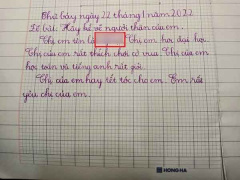 Thứ bảy ngày 22 tháng 1 năm 2022
Đề bài: Hãy kể về người thân của em
Chị em tên là Chị em học đại học.
Chị của em rất thích chơi cờ vua. Chị của em
học toán và tiếng anh rất giỏi.
Chị của em hay tết tóc cho em. Em rất
yêu chị của em.
HONG HA